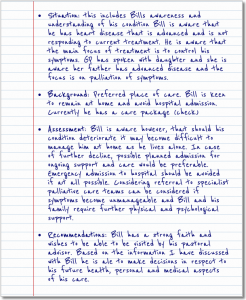 • Situation: this includes Bills awareness and
understanding of his condition Bill is aware that
he has heart disease that is advanced and is not
responding to current treatment. He is aware that
the main focus of treatment is to control his
symptoms. GP has spoken with daughter and she is
aware her father has advanced disease and the
focus is on palliation of symptoms.
• Background: Preferred place of care. Bill is keen
to remain at home and avoid hospital admission.
Currently he has a care package (check)
• Assessment: Bill is aware however, that should his
condition deteriorate it may become difficult to
manage him at home as he lives alone. In case
of further decline, possible planned admission for
ongoing support and care would be preferable.
Emergency admission to hospital should be avoided
if at all possible. Considering referral to specialist
palliative care teams can be considered if
symptoms become unmanageable and Bill and his
family require further physical and psychological
support.
• Recommendations: Bill has a strong faith and
wishes to be able to be visited by his pastoral
advisor. Based on the information I have discussed
with Bill he is able to make decisions in respect to
his future health, personal and medical aspects
of his care.